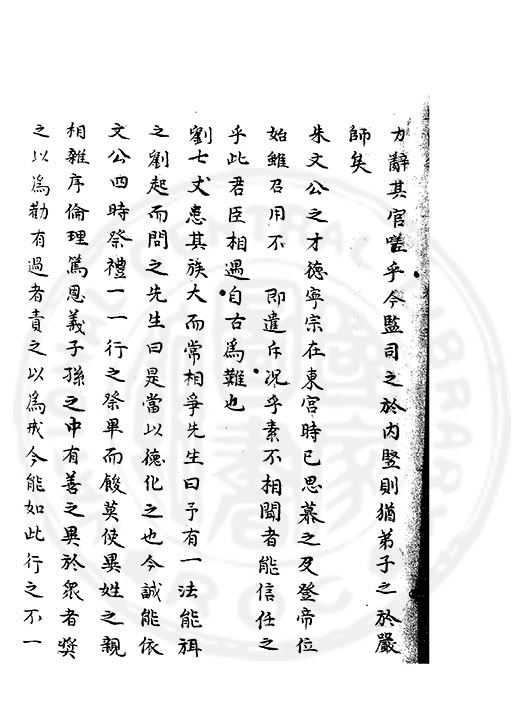 力辭其官嗟乎今監司之於内豎則猶弟子之於嚴
師矣
朱文公之才德寧宗在東宮時已思慕之及登帝位
始雖召用不 即遣斥况乎素不相聞者能信任之
乎此君臣相遇自古爲難也
劉七丈患其族大而常相爭先生曰予有一法能弭
之劉起而問之先生曰是當以德化之也今誠能依
文公四時祭禮一一行之祭畢而餕莫使異姓之親
相雜序倫理篤恩義子孫之中有善之異於衆者奬
之以爲勸有過者責之以爲戒今能如此行之不一